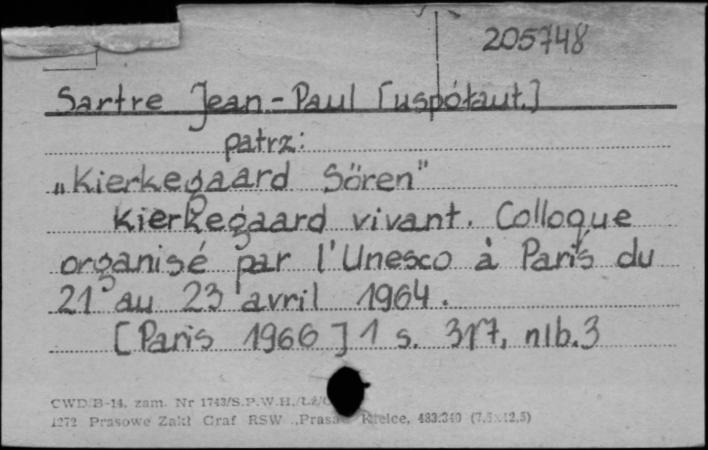 205748
Sartre Jean-Paul [uspółaut.]
patrz:
„Kierkegaard Sören"
Kierkegaard vivant. Colloque
organisé par l'Unesco à Paris du
21 au 23 avril 1964.
[Paris 1966] 1 s. 317, nlb. 3
CWD/B-14, zam. Nr 1743/S.P.W.H.
1272 Prasowe Zakł Graf RSW „Prasa" Kielce, 483.340 (7,5x12,5)